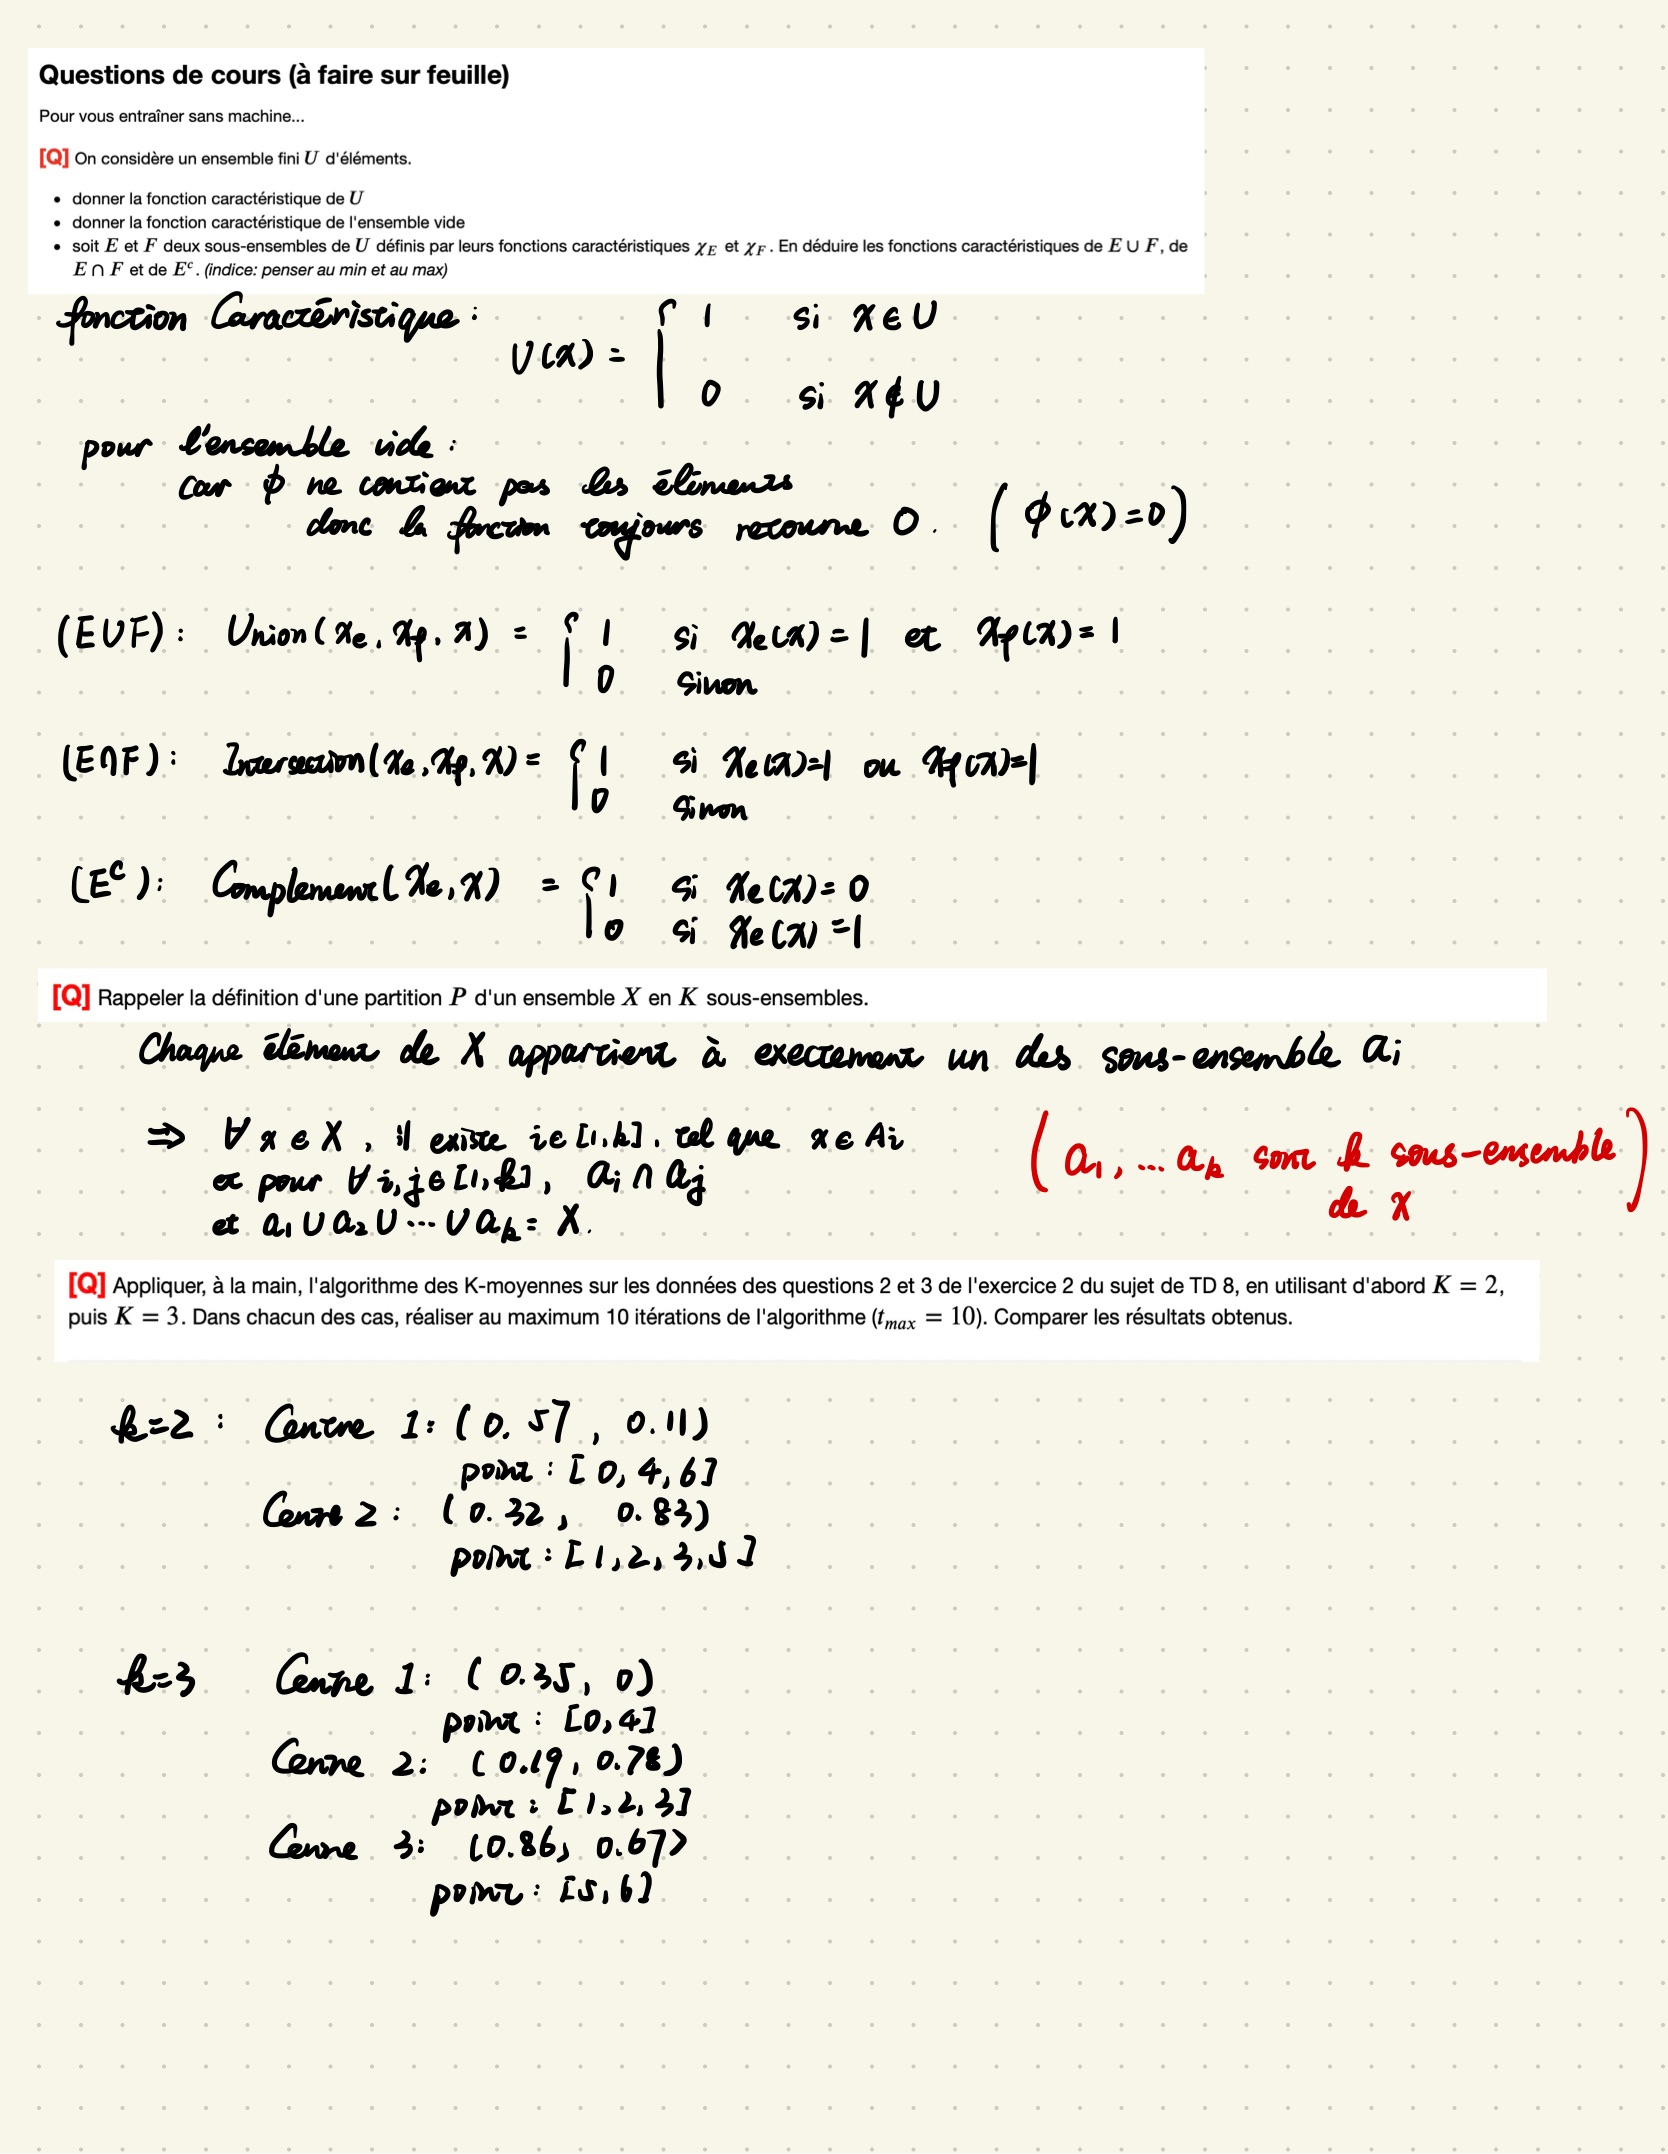 Questions de cours (à faire sur feuille)
Pour vous entraîner sans machine...
[Q] On considère un ensemble fini U d'éléments.
• donner la fonction caractéristique de U
• donner la fonction caractéristique de l'ensemble vide
• soit E et F deux sous-ensembles de U définis par leurs fonctions caractéristiques χE et χF. En déduire les fonctions caractéristiques de E ∪ F, de
E ∩ F et de E^c. (indice: penser au min et au max)
fonction Caractéristique : U(x) = { 1 si x ∈ U
0 si x ∉ U
pour l'ensemble vide :
car ϕ ne contient pas les éléments
donc la fonction toujours retourne 0. (ϕ(x)=0)
(E∪F): Union(χe, χf, x) = { 1 si χe(x)=1 et χf(x)=1
0 sinon
(E∩F): Intersection(χe, χf, x) = { 1 si χe(x)=1 ou χf(x)=1
0 sinon
(E^c): Complement(χe, x) = { 1 si χe(x)=0
0 si χe(x)=1
[Q] Rappeler la définition d'une partition P d'un ensemble X en K sous-ensembles.
Chaque élément de X appartient à exectement un des sous-ensemble ai
⇒ ∀ x ∈ X, il existe i∈[1,k], tel que x ∈ Ai
et pour ∀ i,j∈[1,k], ai ∩ aj
et a1 ∪ a2 ∪ ... ∪ ak = X.
(a1, ... ak sont k sous-ensemble
de X)
[Q] Appliquer, à la main, l'algorithme des K-moyennes sur les données des questions 2 et 3 de l'exercice 2 du sujet de TD 8, en utilisant d'abord K = 2,
puis K = 3. Dans chacun des cas, réaliser au maximum 10 itérations de l'algorithme (tmax = 10). Comparer les résultats obtenus.
k=2 : Centre 1: (0.57, 0.11)
point : [0, 4, 6]
Centre 2 : (0.32, 0.83)
point : [1, 2, 3, 5]
k=3 Centre 1: (0.35, 0)
point : [0, 4]
Centre 2: (0.19, 0.78)
point : [1, 2, 3]
Centre 3: (0.86, 0.67)
point : [5, 6]